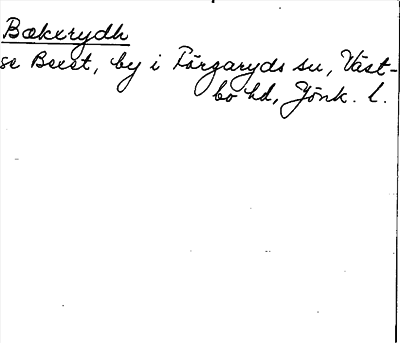 Bækerydh
se Beest, by i Färgaryds sn, Väst-
bo hd, Jönk. l.